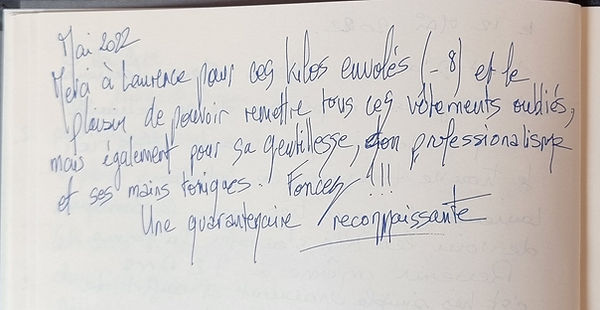 Mai 2022
Merci à Laurence pour ces kilos envolés (-8) et le
plaisir de pouvoir remettre tous ces vêtements oubliés,
mais également pour sa gentillesse, son professionalisme
et ses mains toniques. Foncez !!!
Une quarantenaire reconnaissante